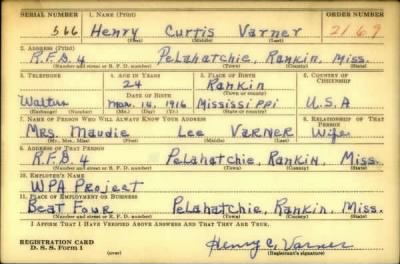 SERIAL NUMBER 1. NAME (Print) ORDER NUMBER
566 Henry Curtis Varner 2169
(First) (Middle) (Last)
2. ADDRESS (Print)
R.F.D. 4 Pelahatchie, Rankin, Miss.
(Number and street or R. F. D. number) (Town) (County) (State)
3. TELEPHONE 4. AGE IN YEARS 5. PLACE OF BIRTH 6. COUNTRY OF CITIZENSHIP
24 Rankin
DATE OF BIRTH (Town or county)
Mar. 14, 1916 Mississippi U.S.A
(Exchange) (Number) (Mo.) (Day) (Yr.) (State or country)
7. NAME OF PERSON WHO WILL ALWAYS KNOW YOUR ADDRESS 8. RELATIONSHIP OF THAT PERSON
Mrs. Maudie Lee Varner Wife
(Mr., Mrs., Miss) (First) (Middle) (Last)
9. ADDRESS OF THAT PERSON
R.F.D. 4 Pelahatchie, Rankin, Miss.
(Number and street or R. F. D. number) (Town) (County) (State)
10. EMPLOYER'S NAME
WPA Project
11. PLACE OF EMPLOYMENT OR BUSINESS
Beat Four Pelahatchie, Rankin, Miss.
(Number and street or R. F. D. number) (Town) (County) (State)
I AFFIRM THAT I HAVE VERIFIED ABOVE ANSWERS AND THAT THEY ARE TRUE.
REGISTRATION CARD
D. S. S. Form 1 (over) Henry C. Varner
(Registrant's signature)